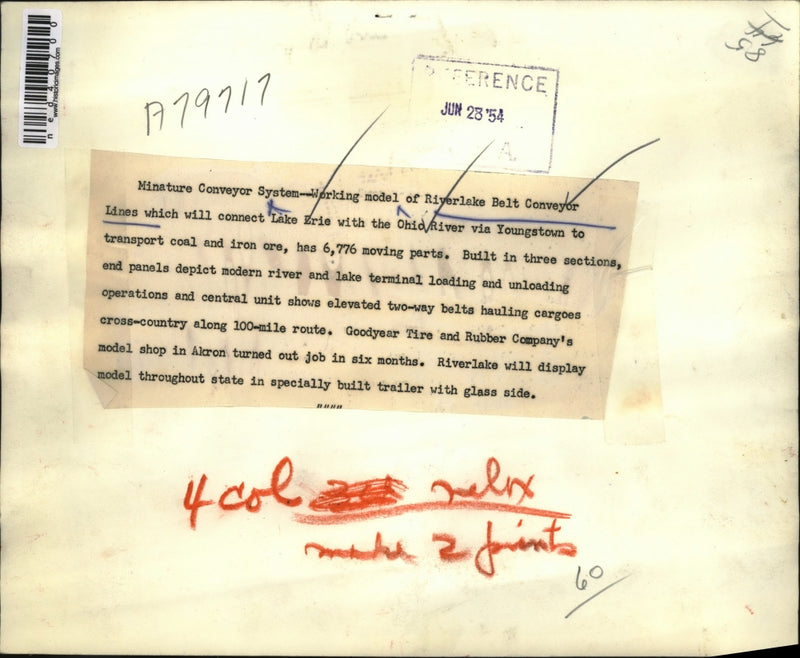 ned40700
www.historicimages.com
A79717
REFERENCE
JUN 28 '54
A.
58
Minature Conveyor System--Working model of Riverlake Belt Conveyor
Lines which will connect Lake Erie with the Ohio River via Youngstown to
transport coal and iron ore, has 6,776 moving parts. Built in three sections,
end panels depict modern river and lake terminal loading and unloading
operations and central unit shows elevated two-way belts hauling cargoes
cross-country along 100-mile route. Goodyear Tire and Rubber Company's
model shop in Akron turned out job in six months. Riverlake will display
model throughout state in specially built trailer with glass side.
""""
4 col
make 2 prints
60